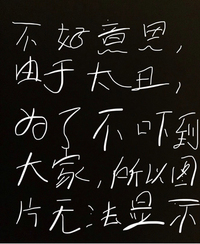 不好意思，
由于太丑，
为了不吓到
大家，所以图
片无法显示